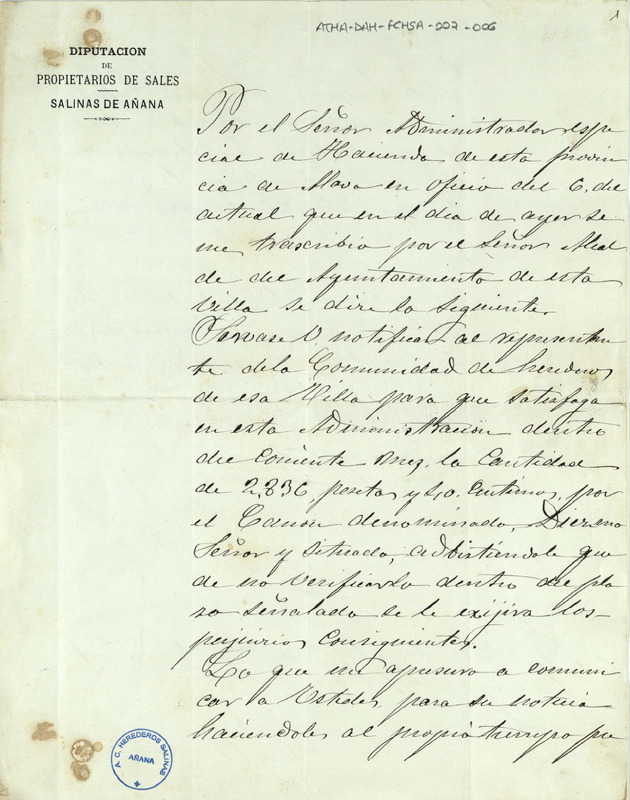 ATHA-DAH-FCHSA-007-006
1
DIPUTACION
DE
PROPIETARIOS DE SALES
SALINAS DE AÑANA
Por el Señor Administrador espe
cial de Hacienda de esta provin
cia de Alava en oficio del 6. del
actual que en el dia de ayer se
me trascribio por el Señor Alcal
de del Ayuntamiento de esta
Villa se dice lo siguiente.
Sirvase V. notificar al representan
te dela Comunidad de herederos
de esa Villa para que satisfaga
en esta Administracion dentro
del corriente mes, la cantidad
de 2,836, pesetas y 50. centimos, por
el Canon denominado, Diezmo
Señor y situado, adbirtiendole que
de no verificarlo dentro del pla
zo señalado se le exijira los
perjuicios consiguientes.
Lo que me apresuro a comuni
car a Ustedes para su noticia
haciendoles al propio tiempo pre
A. C. HEREDEROS SALINAS
AÑANA